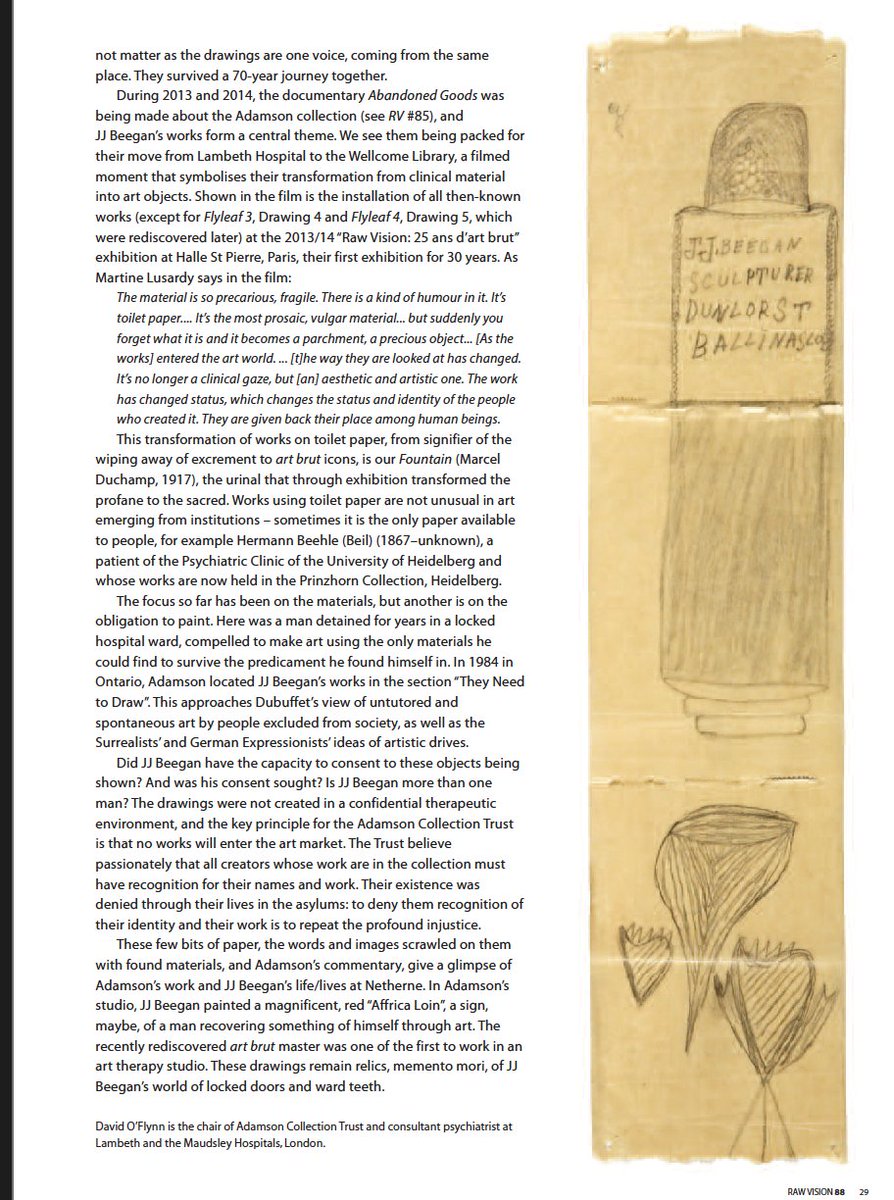 not matter as the drawings are one voice, coming from the same
place. They survived a 70-year journey together.
During 2013 and 2014, the documentary Abandoned Goods was
being made about the Adamson collection (see RV #85), and
JJ Beegan’s works form a central theme. We see them being packed for
their move from Lambeth Hospital to the Wellcome Library, a filmed
moment that symbolises their transformation from clinical material
into art objects. Shown in the film is the installation of all then-known
works (except for Flyleaf 3, Drawing 4 and Flyleaf 4, Drawing 5, which
were rediscovered later) at the 2013/14 “Raw Vision: 25 ans d’art brut”
exhibition at Halle St Pierre, Paris, their first exhibition for 30 years. As
Martine Lusardy says in the film:
The material is so precarious, fragile. There is a kind of humour in it. It’s
toilet paper.... It’s the most prosaic, vulgar material... but suddenly you
forget what it is and it becomes a parchment, a precious object... [As the
works] entered the art world. ... [t]he way they are looked at has changed.
It’s no longer a clinical gaze, but [an] aesthetic and artistic one. The work
has changed status, which changes the status and identity of the people
who created it. They are given back their place among human beings.
This transformation of works on toilet paper, from signifier of the
wiping away of excrement to art brut icons, is our Fountain (Marcel
Duchamp, 1917), the urinal that through exhibition transformed the
profane to the sacred. Works using toilet paper are not unusual in art
emerging from institutions – sometimes it is the only paper available
to people, for example Hermann Beehle (Beil) (1867–unknown), a
patient of the Psychiatric Clinic of the University of Heidelberg and
whose works are now held in the Prinzhorn Collection, Heidelberg.
The focus so far has been on the materials, but another is on the
obligation to paint. Here was a man detained for years in a locked
hospital ward, compelled to make art using the only materials he
could find to survive the predicament he found himself in. In 1984 in
Ontario, Adamson located JJ Beegan’s works in the section “They Need
to Draw”. This approaches Dubuffet’s view of untutored and
spontaneous art by people excluded from society, as well as the
Surrealists’ and German Expressionists’ ideas of artistic drives.
Did JJ Beegan have the capacity to consent to these objects being
shown? And was his consent sought? Is JJ Beegan more than one
man? The drawings were not created in a confidential therapeutic
environment, and the key principle for the Adamson Collection Trust
is that no works will enter the art market. The Trust believe
passionately that all creators whose work are in the collection must
have recognition for their names and work. Their existence was
denied through their lives in the asylums: to deny them recognition of
their identity and their work is to repeat the profound injustice.
These few bits of paper, the words and images scrawled on them
with found materials, and Adamson’s commentary, give a glimpse of
Adamson’s work and JJ Beegan’s life/lives at Netherne. In Adamson’s
studio, JJ Beegan painted a magnificent, red “Affrica Loin”, a sign,
maybe, of a man recovering something of himself through art. The
recently rediscovered art brut master was one of the first to work in an
art therapy studio. These drawings remain relics, memento mori, of JJ
Beegan’s world of locked doors and ward teeth.
David O’Flynn is the chair of Adamson Collection Trust and consultant psychiatrist at
Lambeth and the Maudsley Hospitals, London.
J.J. BEEGAN
SCULPTURER
DUNLORST
BALLINASLO
RAW VISION 88 29